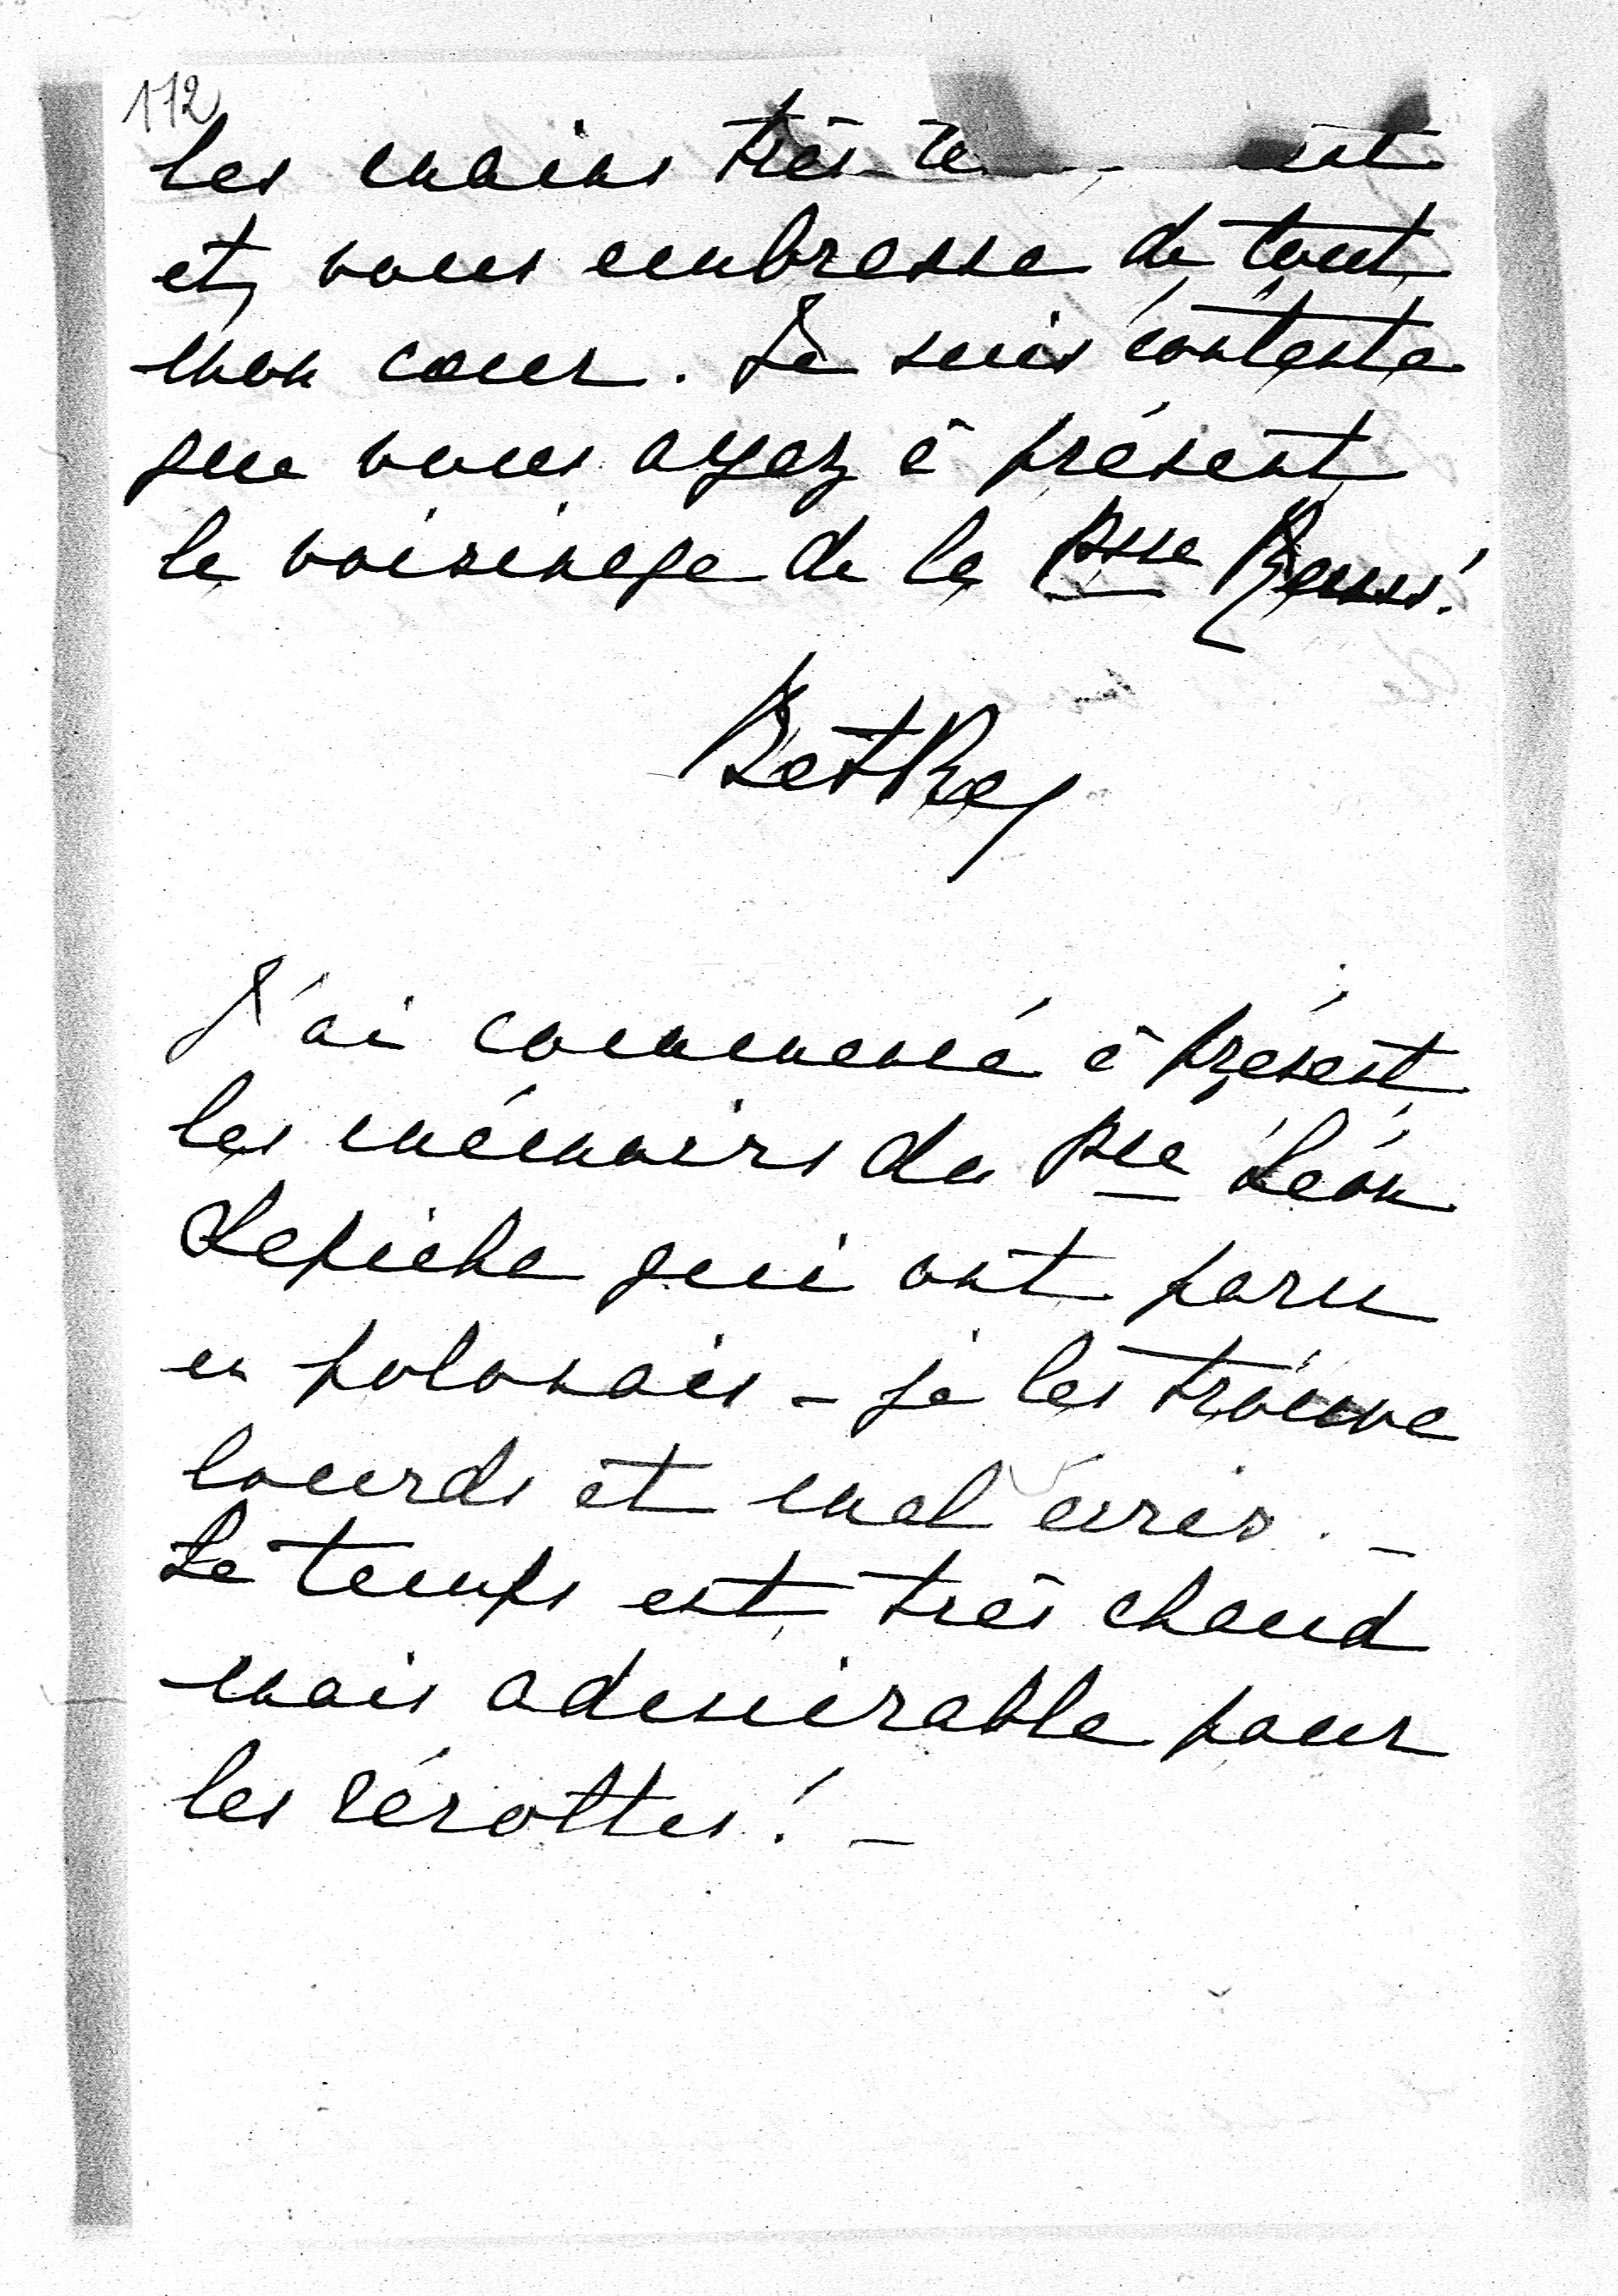 112
les mains très te
et vous embrasse de tout
mon cœur. Je suis contente
que vous ayez à présent
le voisinage de la Psse Reuss!
BetRas
J'ai commencé à présent
les mémoires du Pce Léon
Sapieha qui ont paru
en polonais - je les trouve
lourds et mal écris. -
Le temps est très chaud
mais admirable pour
les récoltes! -